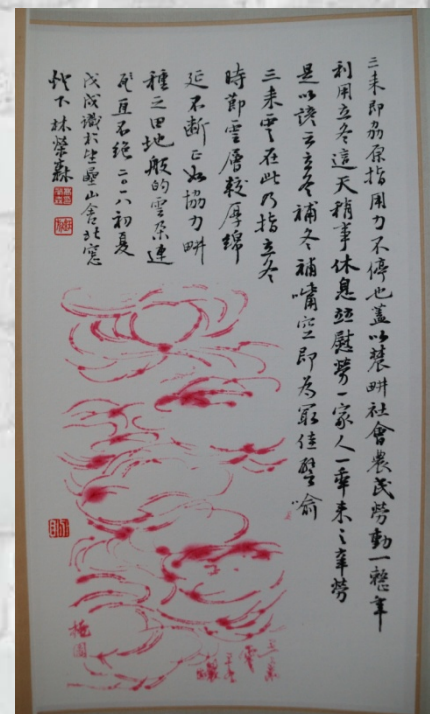 三耒即劦原指用力不停也蓋以農畊社會農民勞動一整年
利用立冬這天稍事休息並慰勞一家人一年來之辛勞
是以諺云立冬補冬補嘴空即為最佳譬喻
三耒雲在此乃指立冬
時節雲層較厚綿
延不斷正如協力畊
種之田地般的雲朶連
死亙不絕二〇一八初夏
戊戌識於坐壘山舍北窗
燈下林榮森